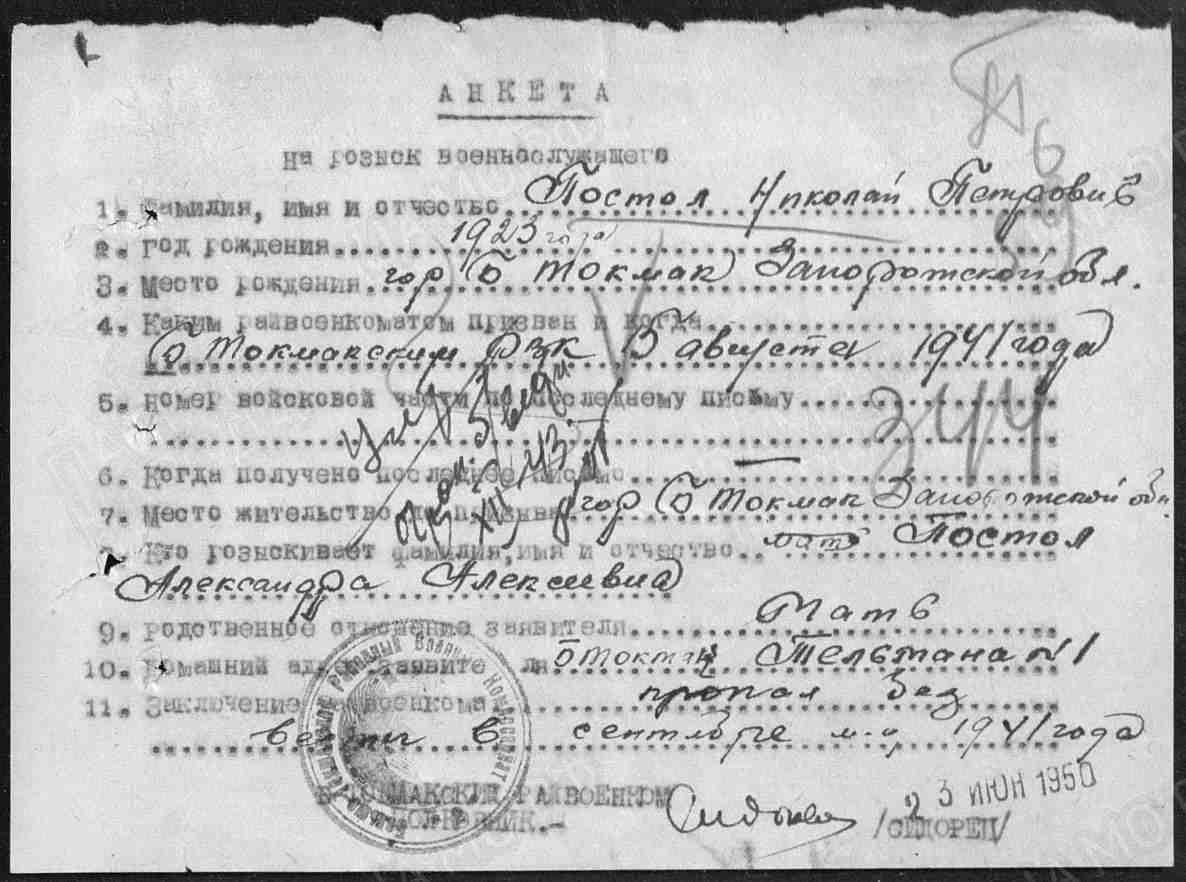 АНКЕТА
На розыск военнослужащего
1. Фамилия, имя и отчество Постол Николай Петрович
2. год рождения 1923 года
3. Место рождения гор Б Токмак Запорожской обл.
4. Каким райвоенкоматом призван и когда
Б Токмакским РВК 5 августа 1941 года
5. номер войсковой части по последнему письму
244
6. Когда получено последнее письмо —
7. Место жительство до призыва гор Б Токмак Запорожской обл.
Кто розыскивает фамилия, имя и отчество мать Постол
Александра Алексеевна
9. родственное отношение заявителя Мать
10. Домашний адрес заявителя Б Токмак Тельмана №1
11. Заключение райвоенкома пропал без
вести в сентябре м-ц 1941 года
XII 43
Районный Военный Комиссариат
Б ТОКМАКСКИЙ РАЙВОЕНКОМ
ПОЛКОВНИК.-
/СИДОРЕЦ/
23 ИЮН 1950